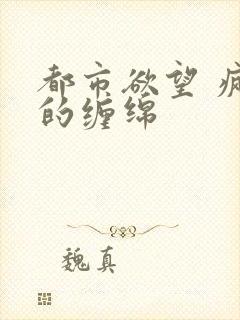 都市欲望 疯
的缠绵
魏真